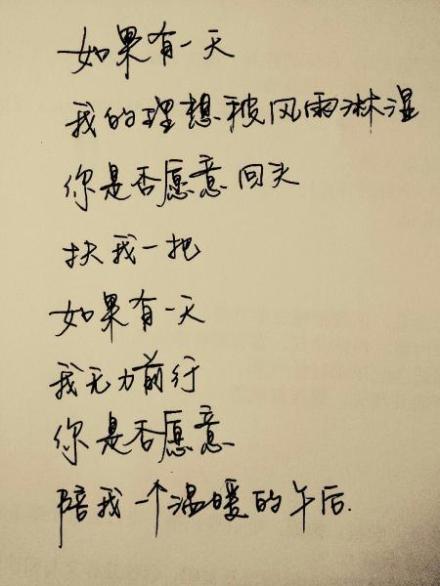 如果有一天
我的理想被风雨淋湿
你是否愿意回头
扶我一把
如果有一天
我无力前行
你是否愿意
陪我一个温暖的午后.